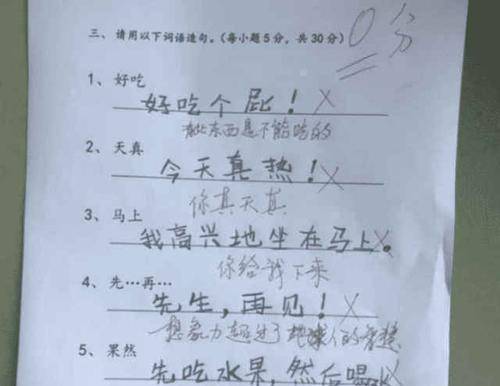 三、请用以下词语造句。(每小题5分,共30分)
0分
1、好吃
好吃个屁!
有些东西是不能吃的
2、天真
今天真热!
你真天真
3、马上
我高兴地坐在马上。
你给我下来
4、先…再…
先生,再见!
想象力超过了地球人的智慧
5、果然
先吃水果,然后喝水